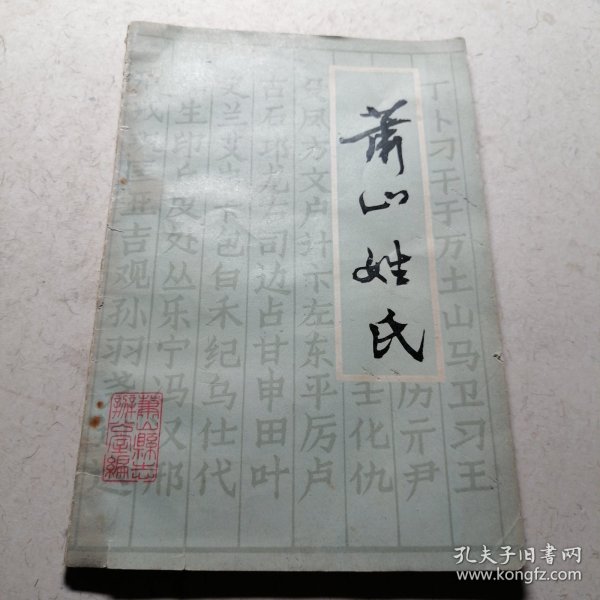 萧山姓氏
丁卜刁干于万土山马卫习王
历亓尹
壬化仇
方文卢计卞左东平厉卢
古石
司边占甘申田叶
艾兰艾
包白禾纪乌仕代
生印
及处丛乐宁冯又邢
吉观孙羽
萧山縣志
辦公室編
孔夫子旧书网
www.kongfz.com